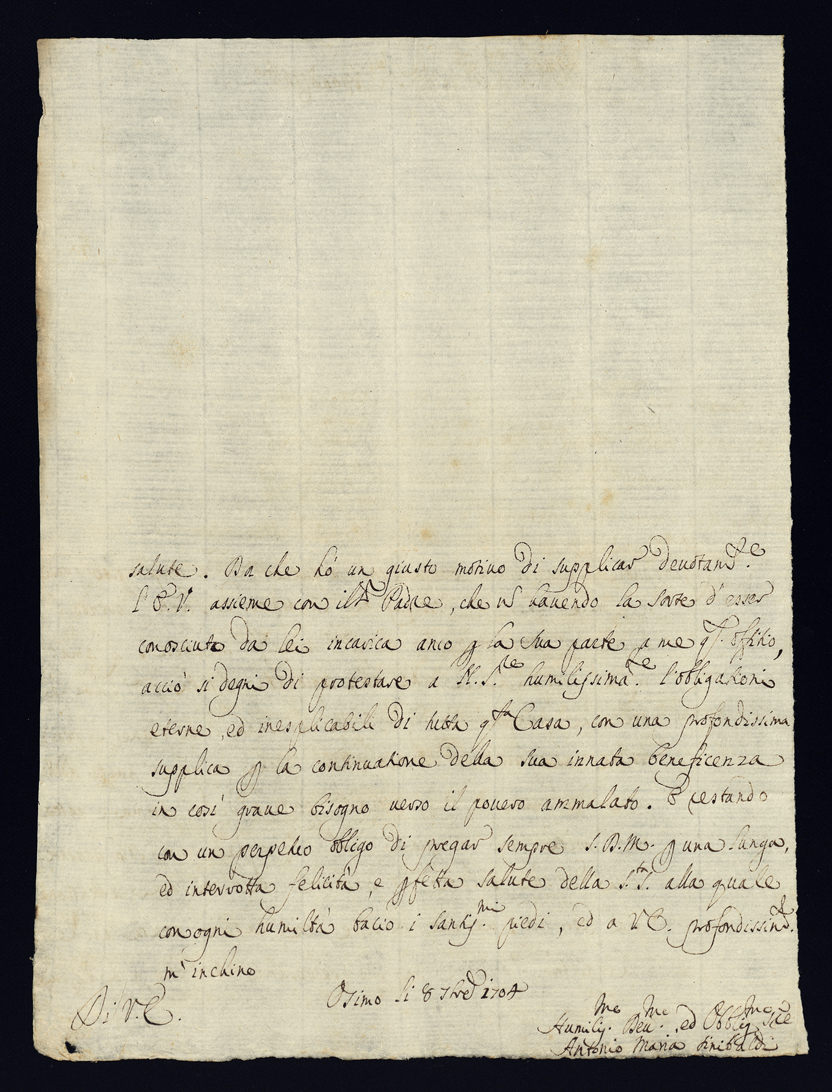 salute. Da che hò un giusto motivo di supplicar devotam.te
l'E.V. assieme con il Padre, che nõ havendo la sorte d'esser
conosciuto da lei incarica anco p la sua parte a me q.sto offitio,
acciò si degni di protestare a N.S.re humilissima.te l'obligationi
eterne, ed inesplicabili di tutta q.sta Casa, con una profondissima
supplica p la continuatione della sua innata beneficenza
in così grave bisogno verso il povero ammalato. E restando
con un perpetuo obligo di pregar sempre S.D.M. p una lunga,
ed interrotta felicità, e pfetta salute della S.tà S. alla quale
con ogni humiltà bacio i santiss.mi piedi, ed a V.E. profondissim.te
m'inchino
Osimo li 8 7bre 1704
Di V.E.
Humiliss.mo Dev.mo ed Obblig.mo Ser.e
Antonio Maria Sinibaldi